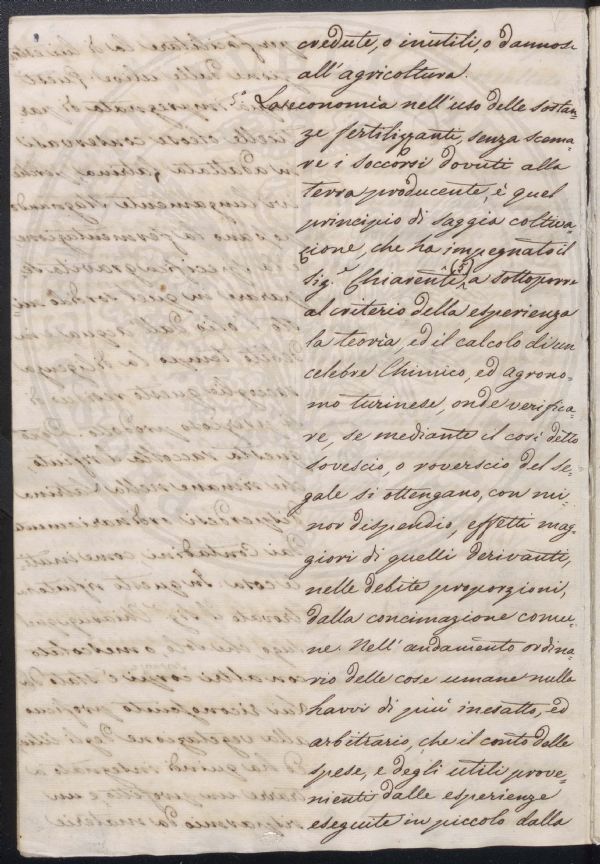 credute, o inutili, o dannose
all'agricoltura.
5.° La economia nell'uso delle sostan-
ze fertilizzanti, senza scema-
re i soccorsi dovuti alla
terra producente, è quel
principio di saggia coltiva
zione, che ha impegnato il
Sig.r Chiarenti (5) a sottoporre
al criterio della esperienza
la teoria, ed il calcolo di un
celebre Chimico, ed agrono-
mo turinese, onde verifica-
re, se mediante il così detto
sovescio, o roverscio del se-
gale si ottengano, con mi-
nor dispendio, effetti mag-
giori di quelli derivanti,
nelle debite proporzioni,
dalla concimazione comu-
ne. Nell'andamento ordina-
rio delle cose umane nulla
havvi di più inesatto, ed
arbitrario, che il conto delle
spese, e degli utili prove-
nienti dalle esperienze
eseguite in piccolo dalla